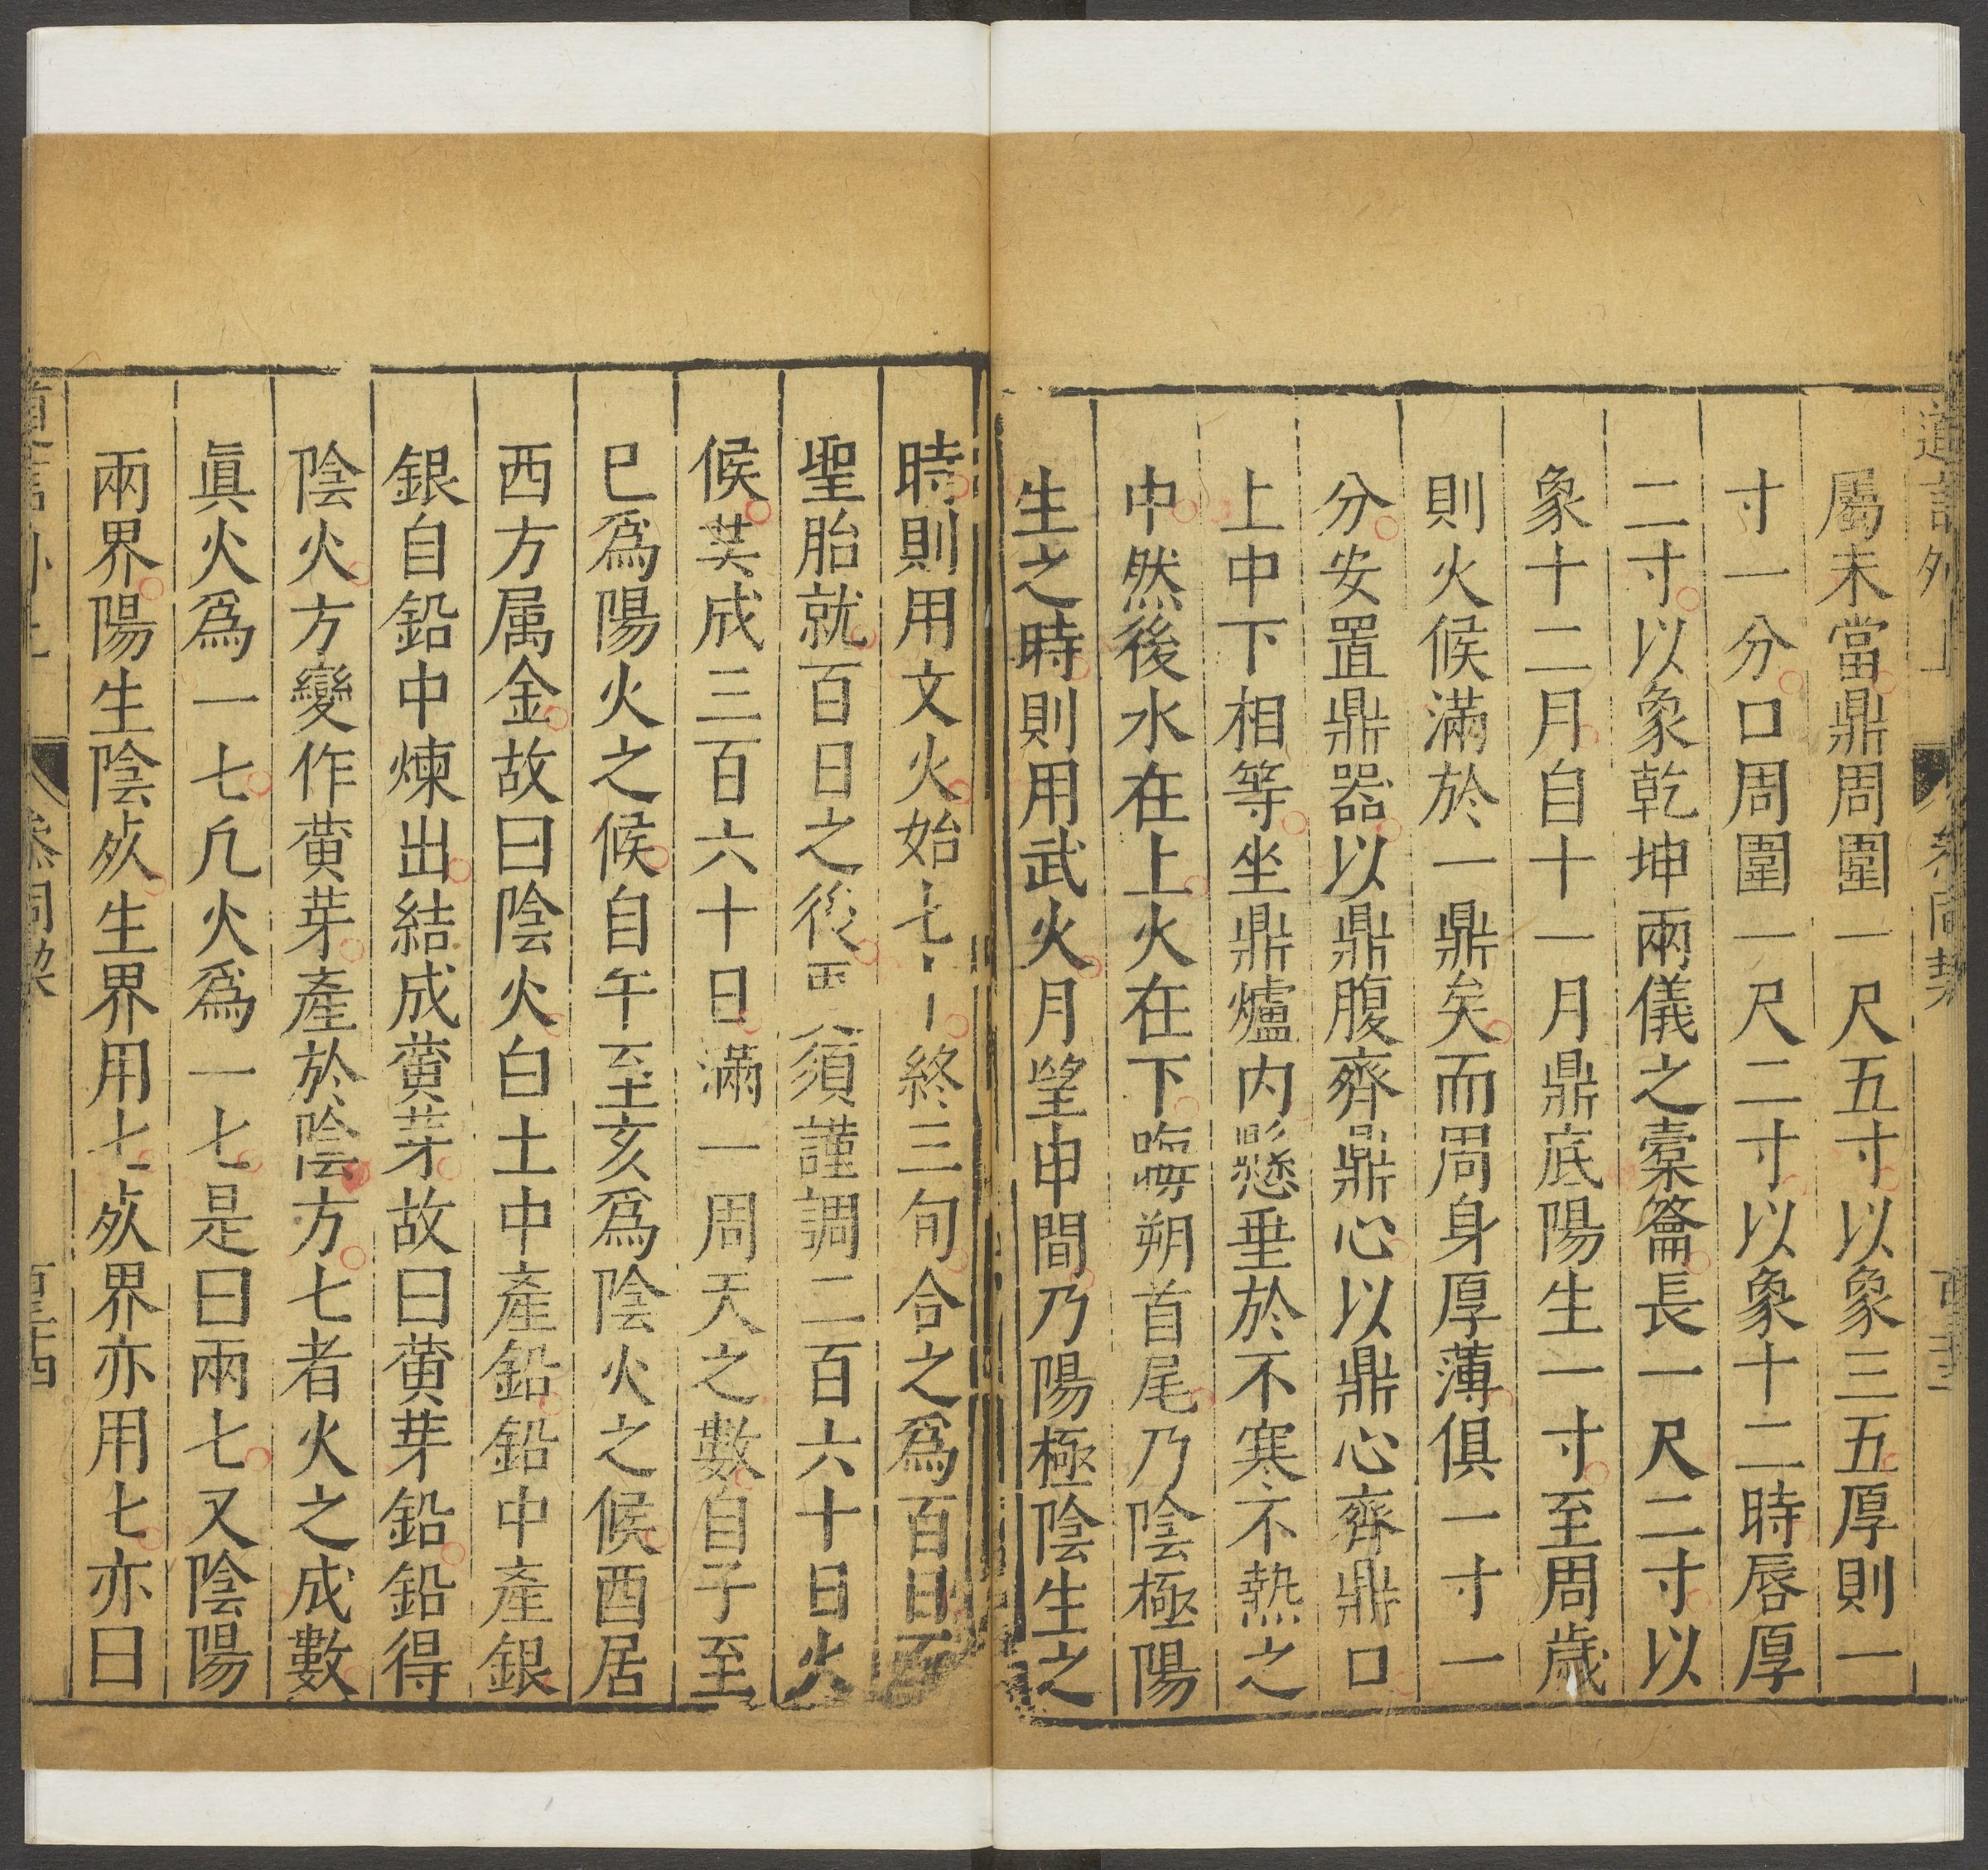 屬未當鼎周圍一尺五寸以象三五厚則一
寸一分口周圍一尺二寸以象十二時唇厚
二寸以象乾坤兩儀之橐籥長一尺二寸以
象十二月自十一月鼎底陽生一寸至周歲
則火候滿於一鼎矣而周身厚薄俱一寸一
分安置鼎器以鼎腹齊鼎心以鼎心齊鼎口
上中下相等坐鼎爐内懸垂於不寒不熱之
中然後水在上火在下晦朔首尾乃陰極陽
生之時則用武火月望申間乃陽極陰生之
時則用文火始七終三旬合之爲百日百
聖胎就百日之後須謹調二百六十日火
候共成三百六十日滿一周天之數自子至
巳爲陽火之候自午至亥爲陰火之候酉居
西方属金故曰陰火白土中產鉛鉛中產銀
銀自鉛中煉出結成黄芽故曰黄芽鉛鉛得
陰火方變作黄芽產於陰方七者火之成數
眞火爲一七凡火爲一七是曰兩七又陰陽
兩界陽生陰㱕生界用七㱕界亦用七亦曰